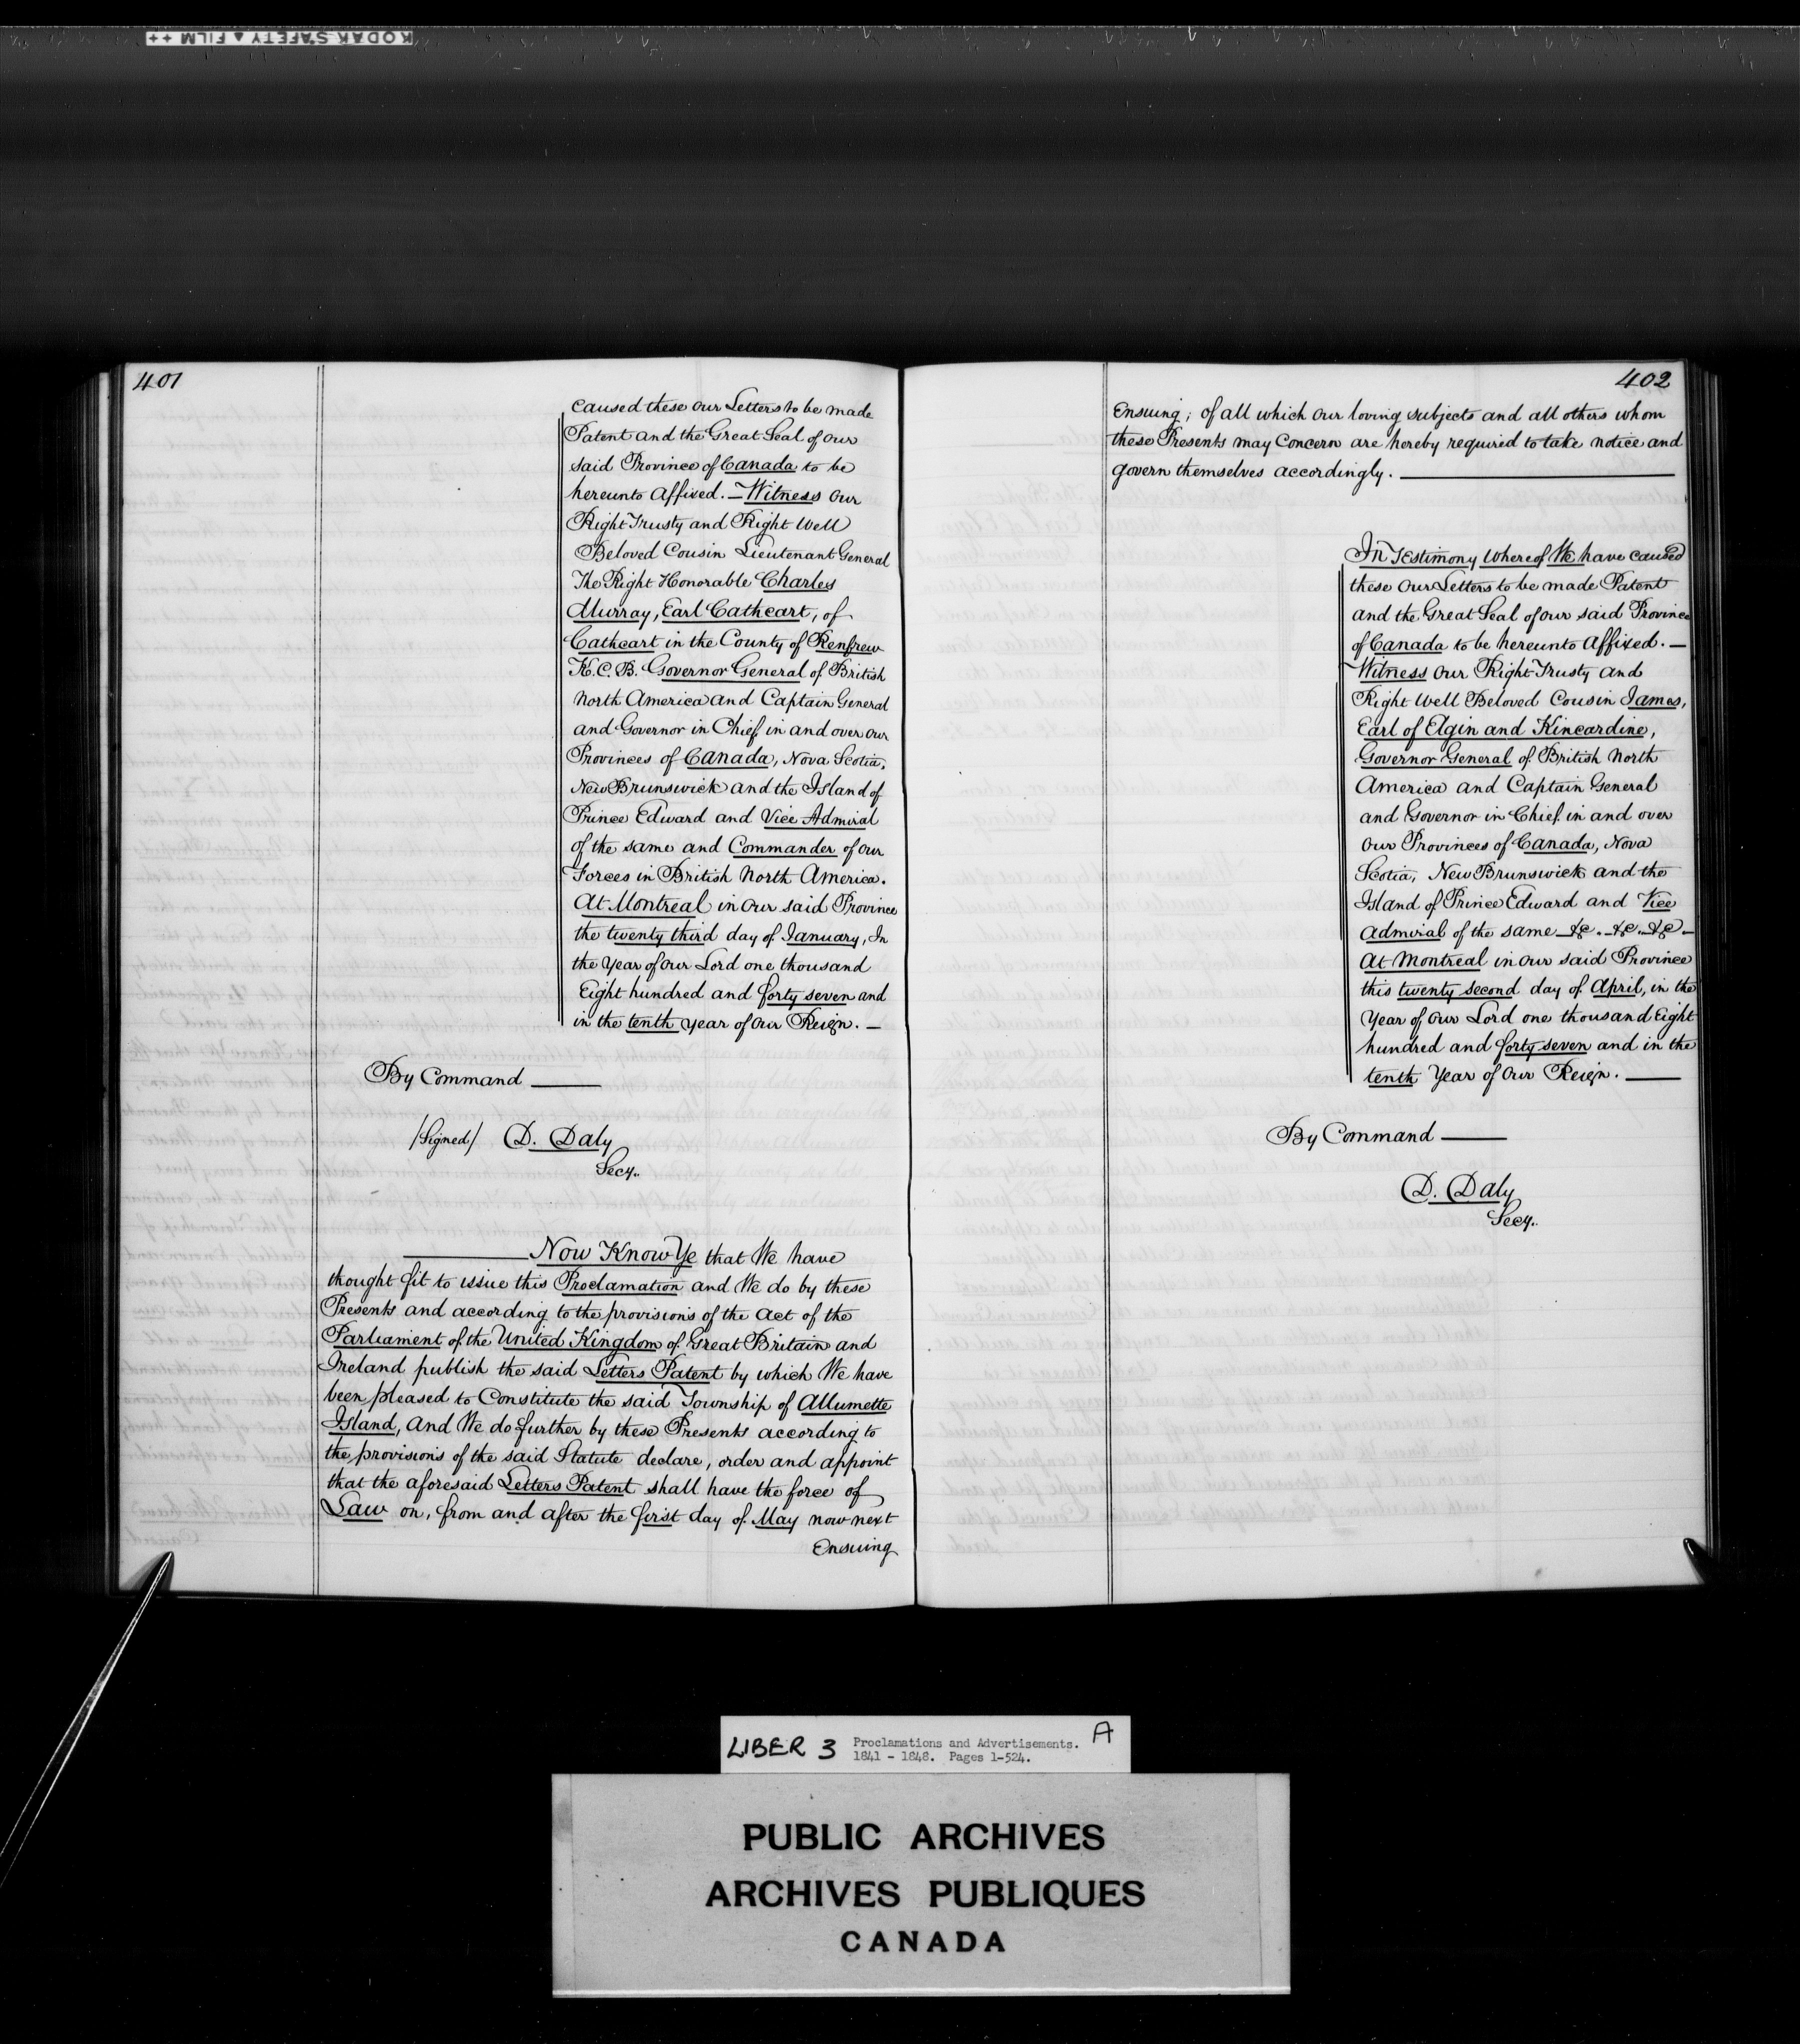 KODAK SAFETY ▲ FILM ++
401
caused these our Letters to be made
Patent and the Great Seal of our
said Province of Canada to be
hereunto affixed. — Witness our
Right Trusty and Right Well
Beloved Cousin Lieutenant General
The Right Honorable Charles
Murray, Earl Cathcart, of
Cathcart in the County of Renfrew
K. C. B. Governor General of British
North America and Captain General
and Governor in Chief in and over our
Provinces of Canada, Nova Scotia,
New Brunswick and the Island of
Prince Edward and Vice Admiral
of the same and Commander of our
Forces in British North America.
At Montreal in our said Province
the twenty third day of January, In
the Year of our Lord one thousand
Eight hundred and forty seven and
in the tenth year of our Reign. —
By Command —
/Signed/ D. Daly
Secy..
Now Know Ye that We have
thought fit to issue this Proclamation and We do by these
Presents and according to the provisions of the Act of the
Parliament of the United Kingdom of Great Britain and
Ireland publish the said Letters Patent by which We have
been pleased to Constitute the said Township of Allumette
Island, And We do further by these Presents according to
the provisions of the said Statute declare, order and appoint
that the aforesaid Letters Patent shall have the force of
Law on, from and after the first day of May now next
Ensuing
402
Ensuing; of all which our loving subjects and all others whom
these Presents may concern are hereby required to take notice and
govern themselves accordingly. —
In Testimony Whereof We have caused
these our Letters to be made Patent
and the Great Seal of our said Province
of Canada to be hereunto affixed. —
Witness our Right Trusty and
Right Well Beloved Cousin James,
Earl of Elgin and Kincardine,
Governor General of British North
America and Captain General
and Governor in Chief in and over
our Provinces of Canada, Nova
Scotia, New Brunswick and the
Island of Prince Edward and Vice
Admiral of the same &c. &c. &c. —
At Montreal in our said Province
this twenty second day of April, in the
Year of our Lord one thousand Eight
hundred and forty seven and in the
tenth Year of our Reign. —
By Command —
D. Daly
Secy..
LIBER 3 Proclamations and Advertisements. A
1841 - 1848. Pages 1-524.
PUBLIC ARCHIVES
ARCHIVES PUBLIQUES
CANADA